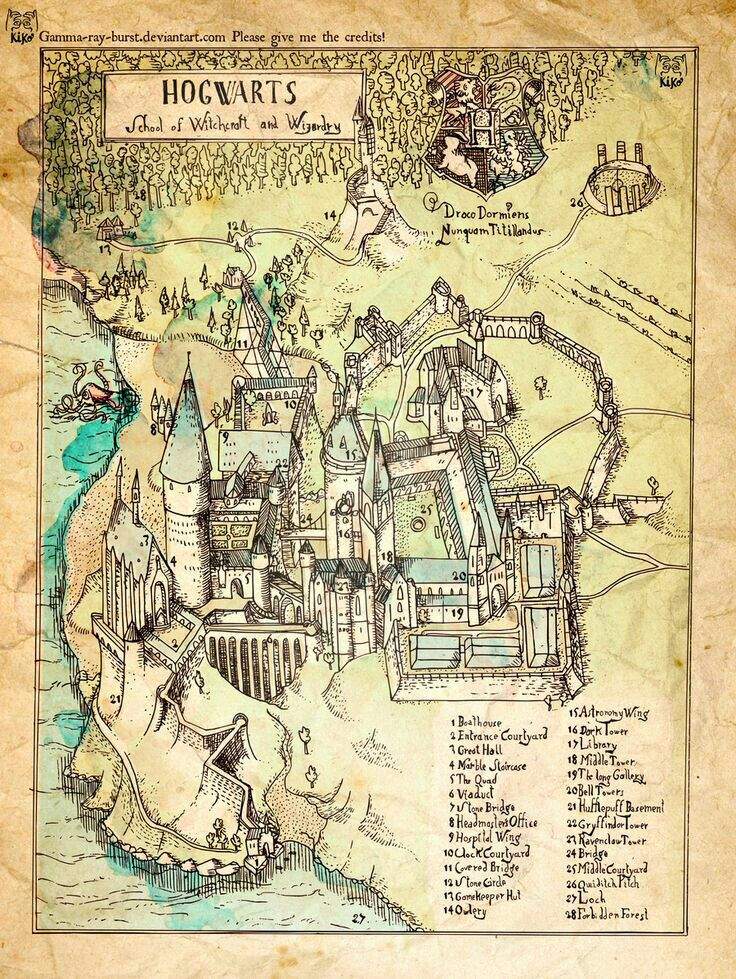 KiKo Gamma-ray-burst.deviantart.com Please give me the credits!
KiKo
HOGWARTS
School of Witchcraft and Wizardry
H
Draco Dormiens
Nunquam Titillandus
28
14
12
13
26
11
10
17
8
9
15
22
25
24
16
3
4
18
20
5
19
2
6
21
1 Boathouse
2 Entrance Courtyard
3 Great Hall
4 Marble Staircase
5 The Quad
6 Viaduct
7 Stone Bridge
8 Headmasters Office
9 Hospital Wing
10 Clock Courtyard
11 Covered Bridge
12 Stone Circle
13 Gamekeeper Hut
14 Owlery
15 Astronomy Wing
16 Dark Tower
17 Library
18 Middle Tower
19 The long Gallery
20 Bell Towers
21 Hufflepuff Basement
22 Gryffindor Tower
23 Ravenclaw Tower
24 Bridge
25 Middle Courtyard
26 Quiditch Pitch
27 Loch
28 Forbidden Forest
27